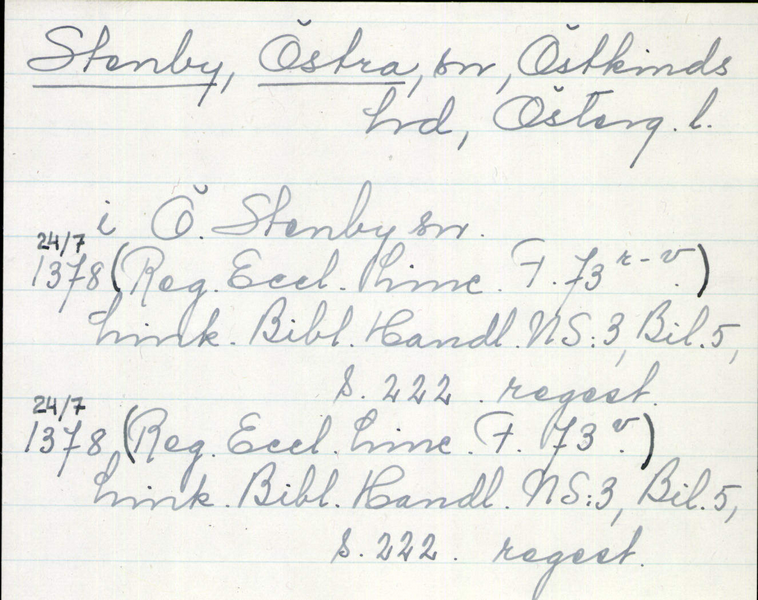 Stenby, Östra, sn, Östkinds
hd, Österg. l.
i Ö. Stenby sn.
24/7
1378 (Reg. Eccl. Linc. F. 73 r-v.)
Link. Bibl. Handl. NS:3, Bil. 5,
s. 222. regest.
24/7
1378 (Reg. Eccl. Linc. F. 73 v.)
Link. Bibl. Handl. NS:3, Bil. 5,
s. 222. regest.